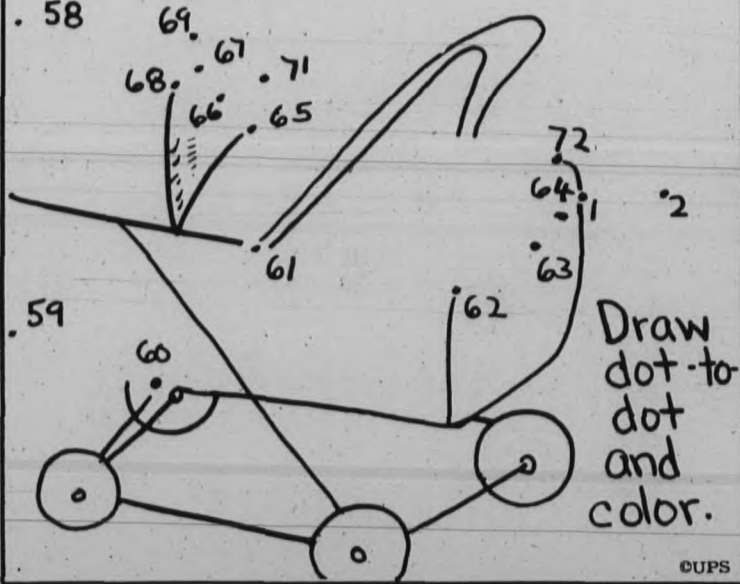 58
69
67
71
68
66
65
72
64
1
2
61
63
62
59
60
Draw
dot-to-
dot
and
color.
©UPS